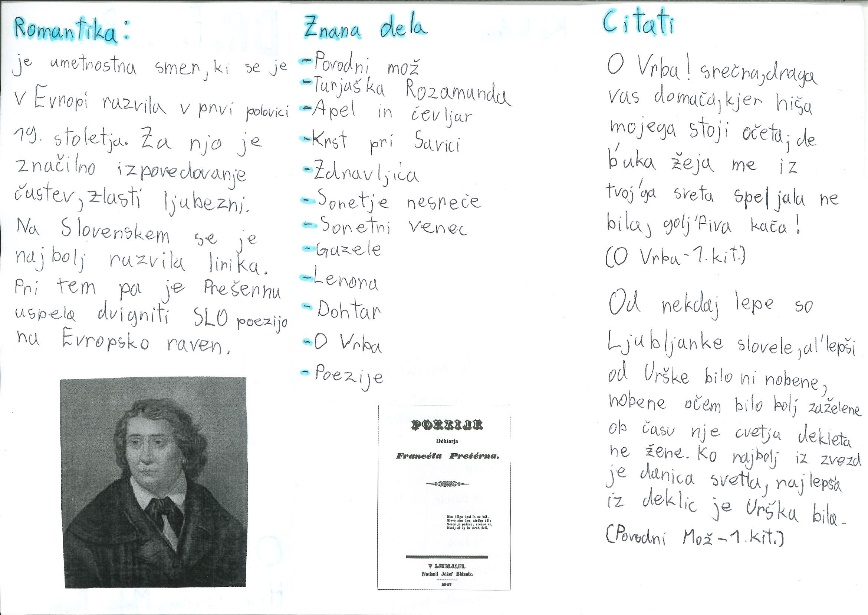 Romantika:
je umetnostna smer, ki se je
v Evropi razvila v prvi polovici
19. stoletja. Za njo je
značilno izpovedovanje
čustev, zlasti ljubezni.
Na Slovenskem se je
najbolj razvila lirika.
Pri tem pa je Prešernu
uspelo dvigniti SLO poezijo
na Evropsko raven.
Znana dela
-Povodni mož
-Turjaška Rozamunda
-Apel in čevljar
-Krst pri Savici
-Zdravljica
-Sonetje nesreče
-Sonetni venec
-Gazele
-Lenora
-Dohtar
-O Vrba
-Poezije
POEZIJE
Doktorja
Francéta Prešérna.
V LJUBLJANI.
Natisnil Jožef Blasnik.
1847
Citati
O Vrba! srečna, draga
vas domača, kjer hiša
mojega stoji očeta, de
b'uka žeja me iz
tvoj'ga sveta speljala ne
bila, golj'fiva kača!
(O Vrba-1.kit.)
Od nekdaj lepe so
Ljubljanke slovele, al' lepši
od Urške bilo ni nobene,
nobene očem bilo bolj zaželene
ob času nje cvetja dekleta
ne žene. Ko najbolj iz zvezd
je danica svetla, najlepša
iz deklic je Urška bila.
(Povodni Mož-1.kit.)